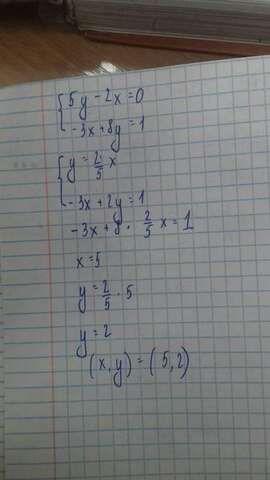 5y - 2x = 0
-3x + 8y = 1
y = 2/5 x
-3x + 2y = 1
-3x + 8 · 2/5 x = 1
x = 5
y = 2/5 · 5
y = 2
(x, y) = (5, 2)